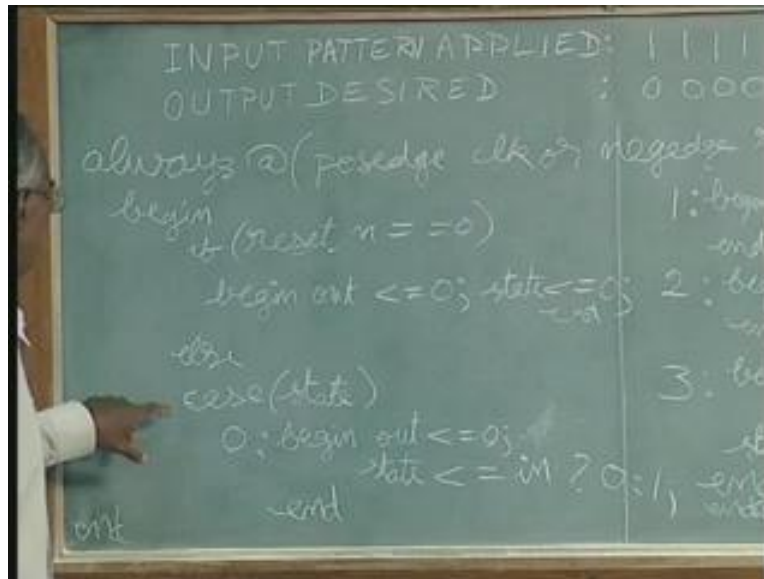 INPUT PATTERN APPLIED: 1 1 1 1
OUTPUT DESIRED : 0 0 0 0
always @ (posedge clk or negedge
begin
if (reset_n == 0)
begin out <= 0; state <= 0;
end
else
case (state)
0: begin out <= 0;
state <= in ? 0:1,
end
1: begin
end
2: be
3: be
st
end